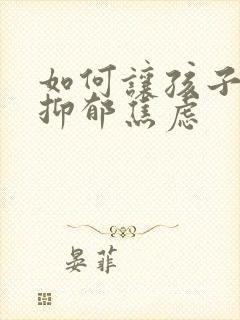 如何讓孩子
抑郁焦虑
晏菲